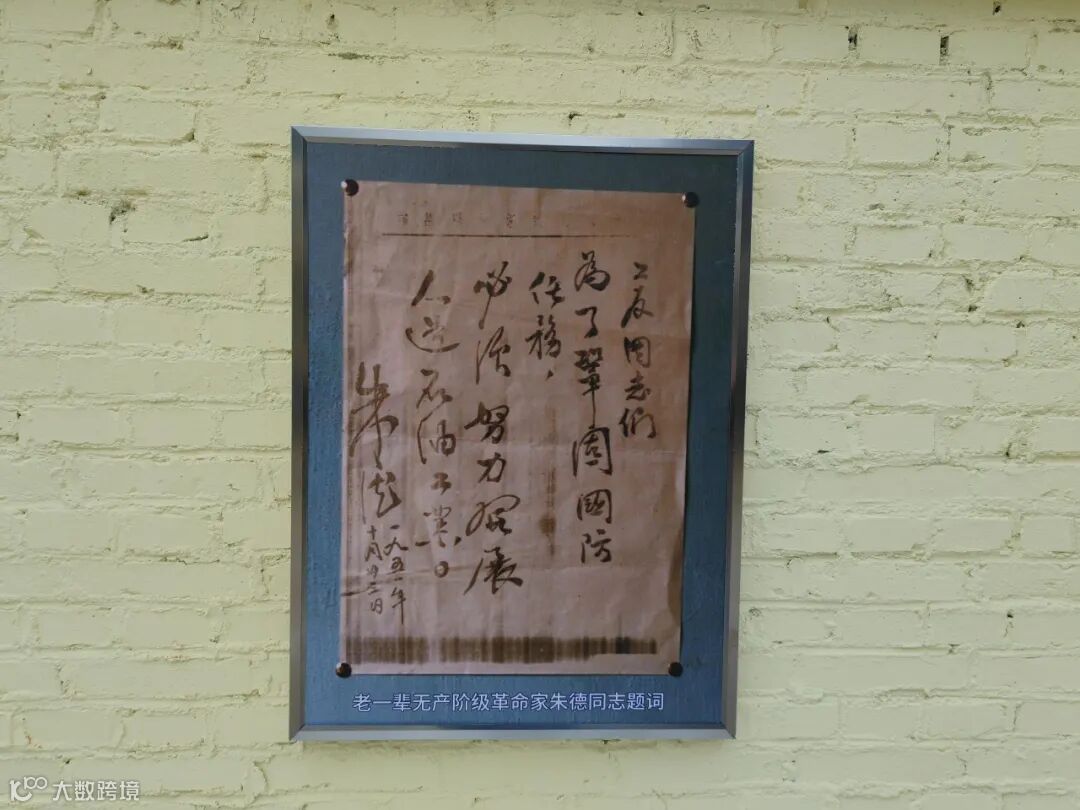 工友同志們
為了鞏固國防
任務，
必須努力發展
人造石油工業。
朱德
一九五一年
十月廿二日
老一辈无产阶级革命家朱德同志题词
大数跨境